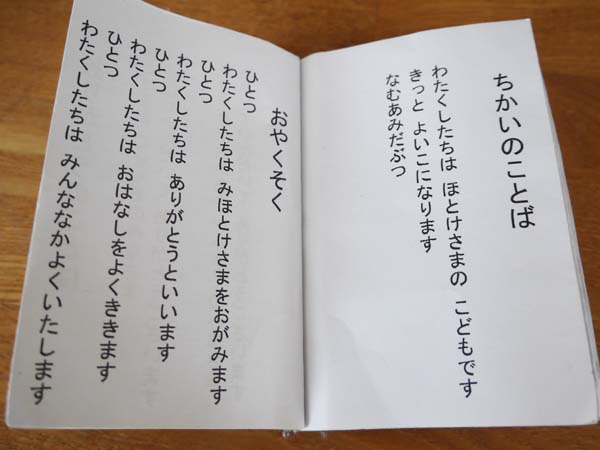 ちかいのことば
わたくしたちは ほとけさまの こどもです
きっと よいこになります
なむあみだぶつ
おやくそく
ひとつ
わたくしたちは みほとけさまをおがみます
ひとつ
わたくしたちは ありがとうといいます
ひとつ
わたくしたちは おはなしをよくききます
ひとつ
わたくしたちは みんななかよくいたします